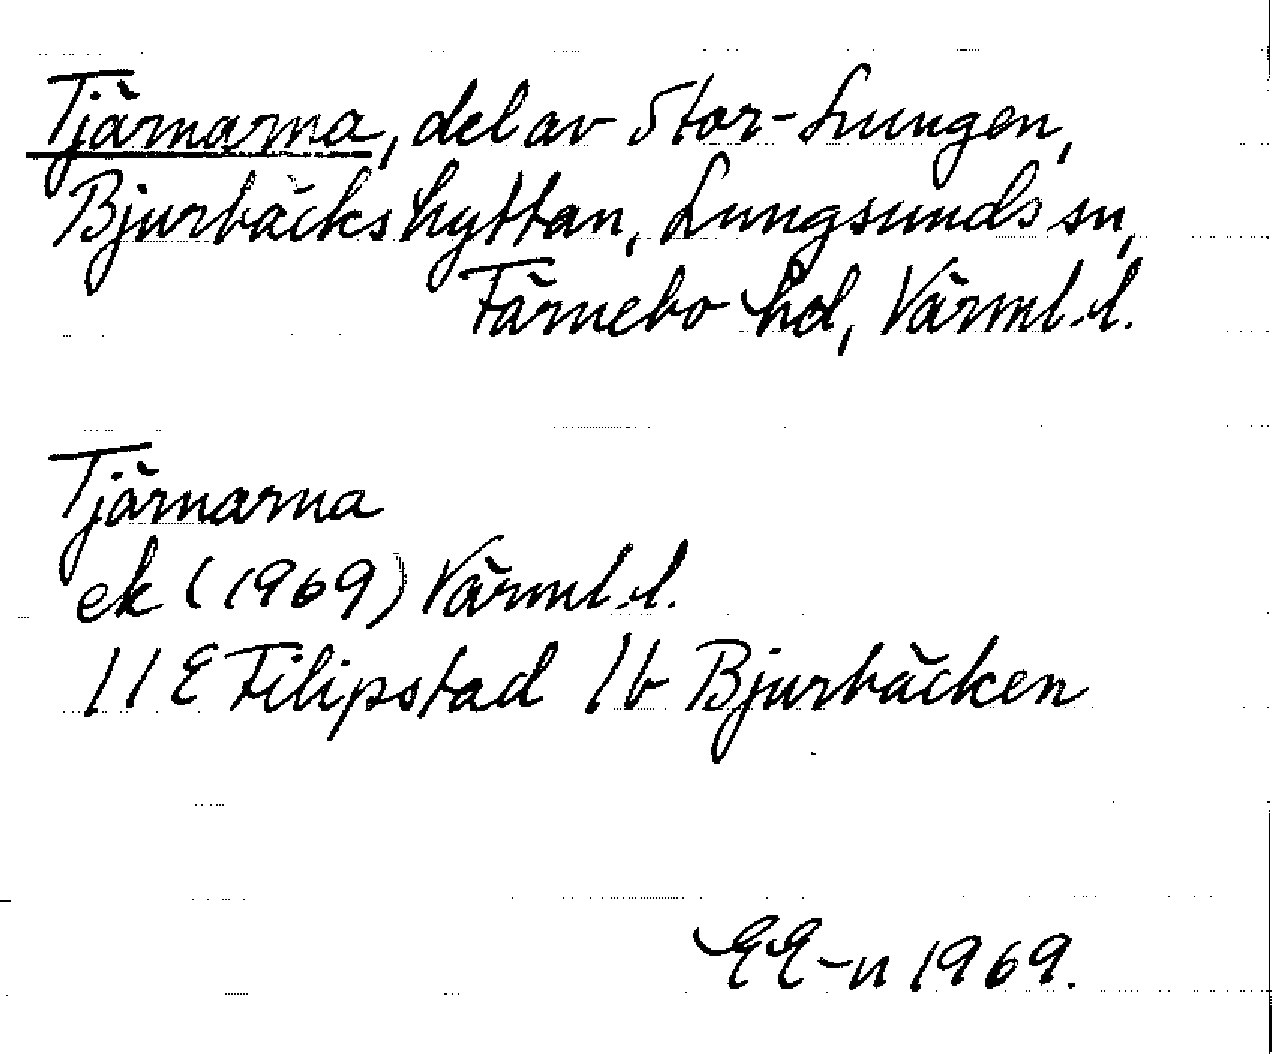 Tjärnarna, del av Stor-Lungen,
Bjurbäckshyttan, Lungsunds sn,
Färnebo hd, Värml. l.
Tjärnarna
ek (1969) Värml. l.
11 E Filipstad 1b Bjurbäcken
EE-n 1969.